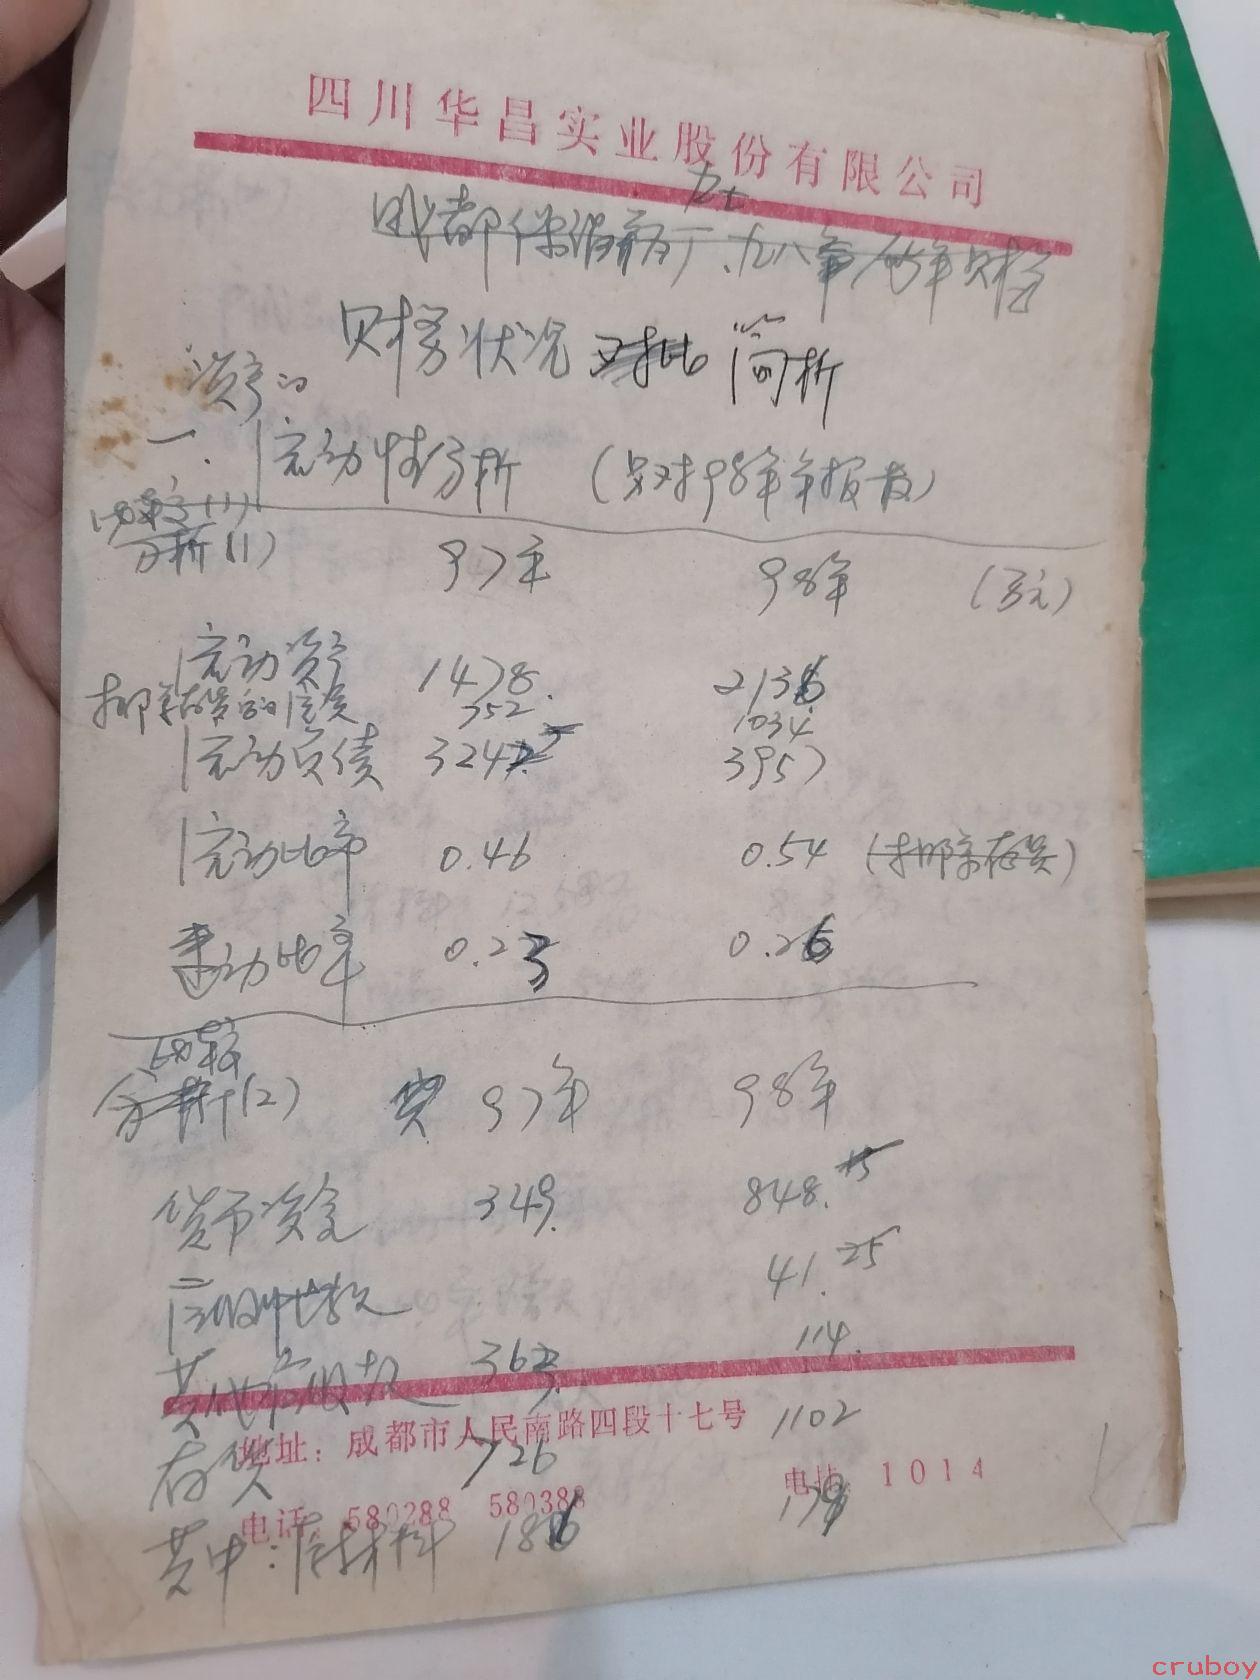 四川华昌实业股份有限公司
九七
成都 厂、九八年 年财务
财务状况 对比 简析
资产的
一.流动性分析 (只对98年年报表)
比较(1)
分析(1) 97年 98年 (万元)
流动资产 1478. 2136
扣除存货的 752 1034
流动负债 324 3957
流动比率 0.46 0.54 (扣除存货)
速动比率 0.23 0.26
比较
分析(2) 97年 98年
货币资金 349. 848.15
应收 41.25
其他应收款 363. 114.
地址:成都市人民南路四段十七号
存货 726 1102
电话:580288 580388 电挂:1014
其中:原材料 186 179
cruboy